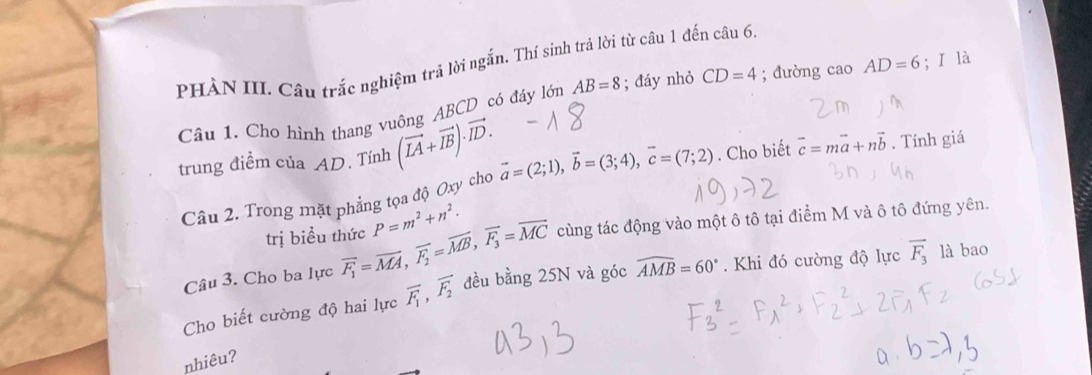 PHẦN III. Câu trắc nghiệm trả lời ngắn. Thí sinh trả lời từ câu 1 đến câu 6.
Câu 1. Cho hình thang vuông ABCD có đáy lớn AB = 8 ; đáy nhỏ CD = 4 ; đường cao AD = 6 ; I là
trung điểm của AD. Tính (\overrightarrow{IA} + \overrightarrow{IB}).\overrightarrow{ID}. -18
2m , m
Câu 2. Trong mặt phẳng tọa độ Oxy cho \vec{a} = (2;1), \vec{b} = (3;4), \vec{c} = (7;2). Cho biết \vec{c} = m\vec{a} + n\vec{b}. Tính giá
trị biểu thức P = m² + n².
3n , 4n
Câu 3. Cho ba lực \overrightarrow{F_1} = \overrightarrow{MA}, \overrightarrow{F_2} = \overrightarrow{MB}, \overrightarrow{F_3} = \overrightarrow{MC} cùng tác động vào một ô tô tại điểm M và ô tô đứng yên.
Cho biết cường độ hai lực \overrightarrow{F_1}, \overrightarrow{F_2} đều bằng 25N và góc \widehat{AMB} = 60°. Khi đó cường độ lực \overrightarrow{F_3} là bao
nhiêu?
43,3
F₃² = F₁² + F₂² + 2F₁F₂